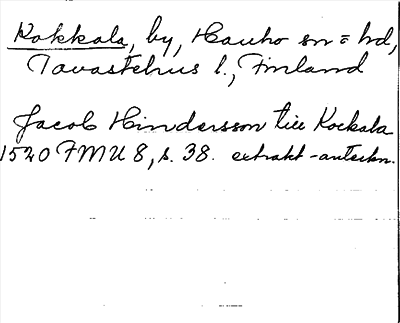 Kokkala, by, Hauho sn = hd,
Tavastehus l., Finland
Jacob Hindersson till Kockala
1520 FMU 8, s. 38. extrakt-anteckn.